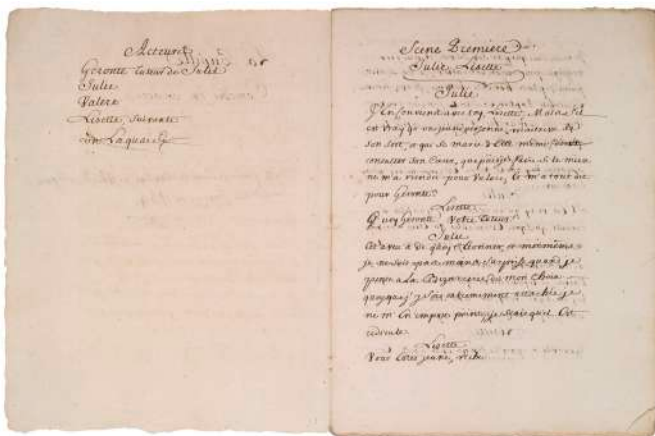 Acteurs
Geronte tuteur de Julie
Julie
Valere
Lisette, Suivante
un Laquais
Scene Premiere
Julie Lisette
Julie
J'en conviens avec toy, Lisette, Mais s'il
est vray qu' une jeune personne, maitresse de
son sort, et qui se marie d'Elle même, doive
consulter son Cœur, que puis je faire si le mien
ne m'a rien dit pour Valere, et m'a tout dit
pour Geronte?
Lisette
Quoy Geronte Votre tuteur
Julie
Cet aveu a de quoy t'étonner, et moi même
je ne suis pas moins surprise quand je
pense a La Bizarrerie de mon Choix
quoyque j'y sois attachée je
ne m'en empire point, je sçais qu'il Est
ridicule.
Lisette
Vous Estes jeune, riche